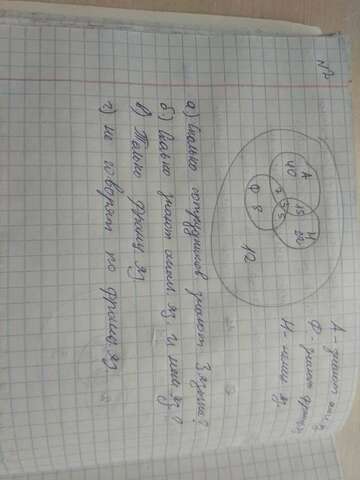 №2
А - знают англ яз
Ф - знают француз
Н - немец яз
А
40
15
Н
Ф
8
12
а) сколько сотрудников знают 3 языка?
б) сколько знают англ яз. и нем яз?
в) Только франц яз
г) не говорят по француз